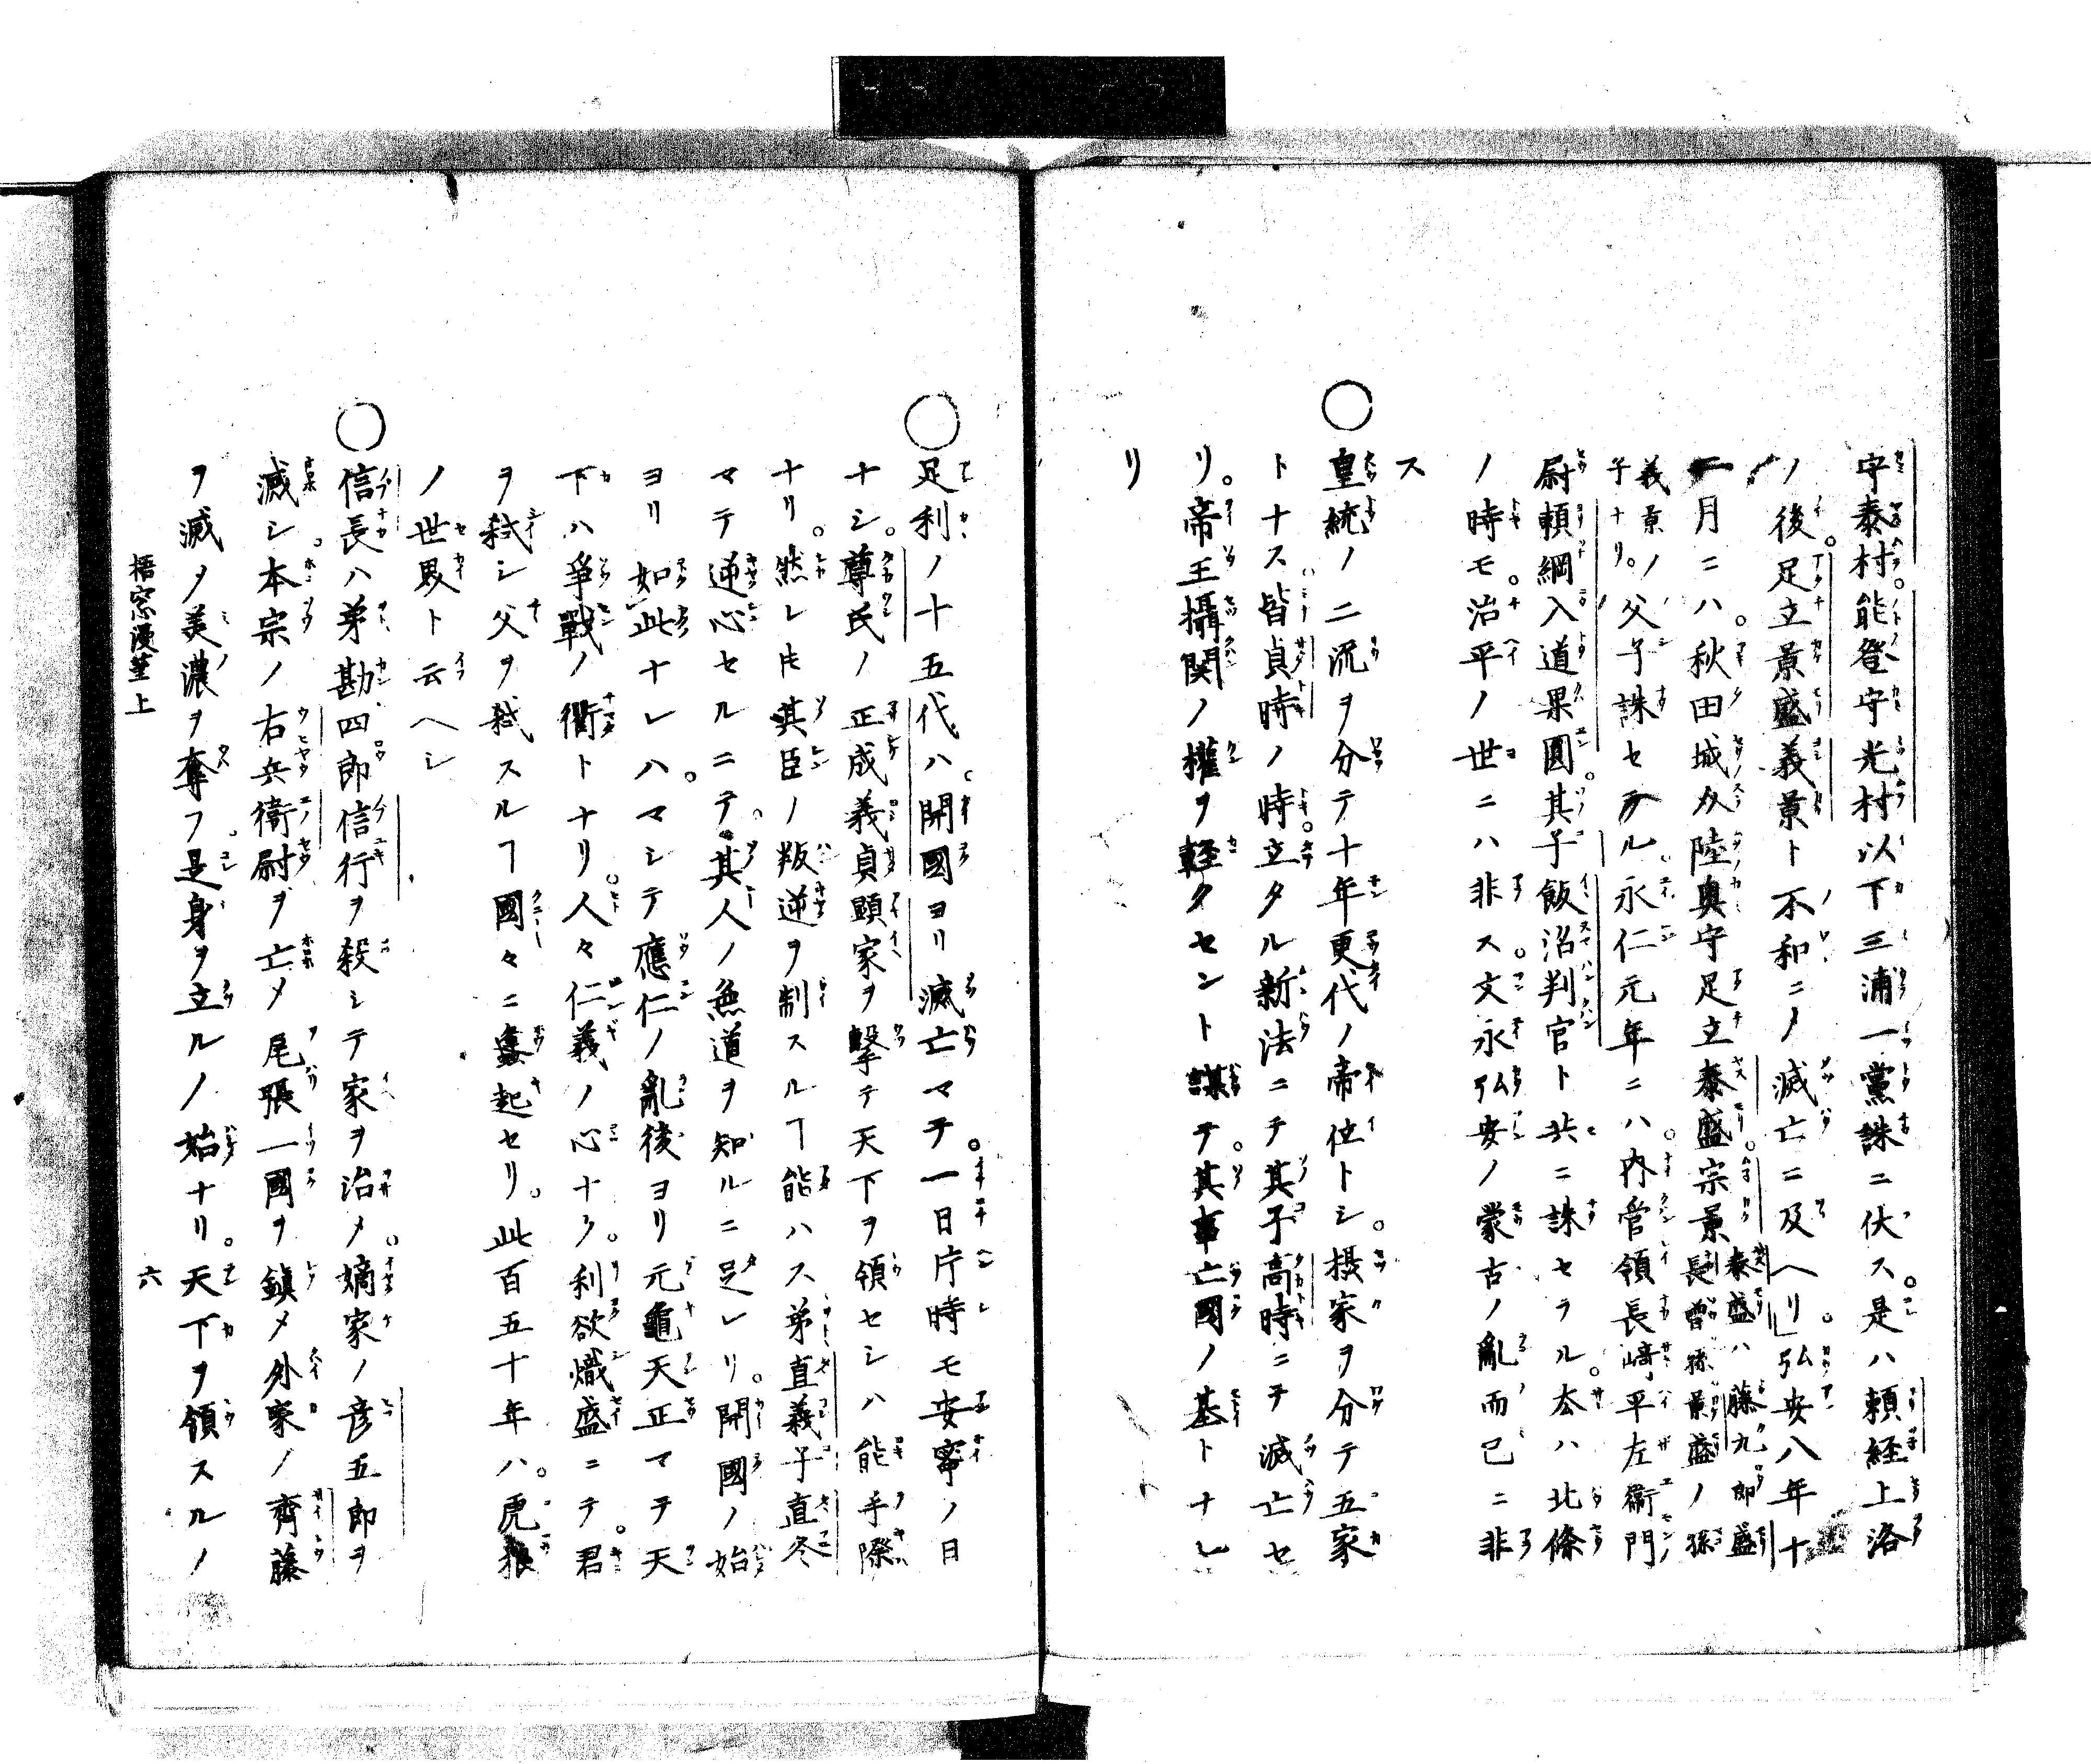 守泰村。能登守光村以下三浦一黨誅ニ伏ス。是ハ頼経上洛
ノ後。足立景盛義景ト不和ニノ滅亡ニ及ヘリ。弘安八年十
一月ニハ。秋田城介陸奥守足立泰盛。宗景 泰盛ハ藤九郎盛長曽孫景盛ノ孫
義景ノ子ナリ。父子誅セラル。永仁元年ニハ。内管領長﨑平左衞門
尉頼綱入道果圓。其子飯沼判官ト共ニ誅セラル。夲ハ北條
ノ時モ。治平ノ世ニハ非ス。文永弘安ノ蒙古ノ亂而已ニ非
ス
○皇統ノ二流ヲ分テ十年更代ノ帝位トシ。摂家ヲ分テ五家
トナス皆貞時ノ時。立タル新法ニテ其子高時ニテ滅亡セ
リ。帝王攝関ノ權ヲ軽クセント謀テ。其事亡國ノ基トナレ
リ
○足利ノ十五代ハ。開國ヨリ滅亡マテ。一日片時モ安寧ノ日
ナシ。尊氏ノ正成義貞顕家ヲ撃テ天下ヲ領セシハ能手際
ナリ。然レ𪜈其臣ノ叛逆ヲ制スルヿ能ハス弟直義子直冬
マテ逆心セルニテ。其人ノ無道ヲ知ルニ足レリ。開國ノ始
ヨリ如此ナレハ。マシテ應仁ノ亂後ヨリ元龜天正マテ天
下ハ爭戰ノ衢トナリ。人々仁義ノ心ナク。利欲熾盛ニテ。君
ヲ弑シ父ヲ弑スルヿ國々ニ蠭起セリ。此百五十年ハ。虎狼
ノ世界ト云ヘシ
○信長ハ弟勘四郎信行ヲ殺シテ家ヲ治メ。嫡家ノ彦五郎ヲ
滅シ。本宗ノ右兵衞尉ヲ亡メ尾張一國ヲ鎮メ外家ノ齊藤
ヲ滅メ美濃ヲ奪フ。是身ヲ立ルノ始ナリ。天下ヲ領スルノ
梧窓漫筆上 六